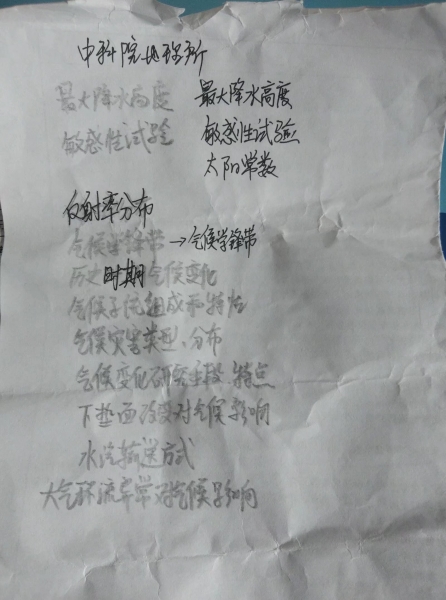 中科院地理所
最大降水高度 最大降水高度
敏感性试验 敏感性试验
太阳常数
反射率分布
气候学锋带→气候学锋带
历史时期气候变化
气候系统组成和特性
气候灾害类型、分布
气候变化研究手段 特点
下垫面改变对气候影响
水汽输送方式
大气环流异常对气候影响